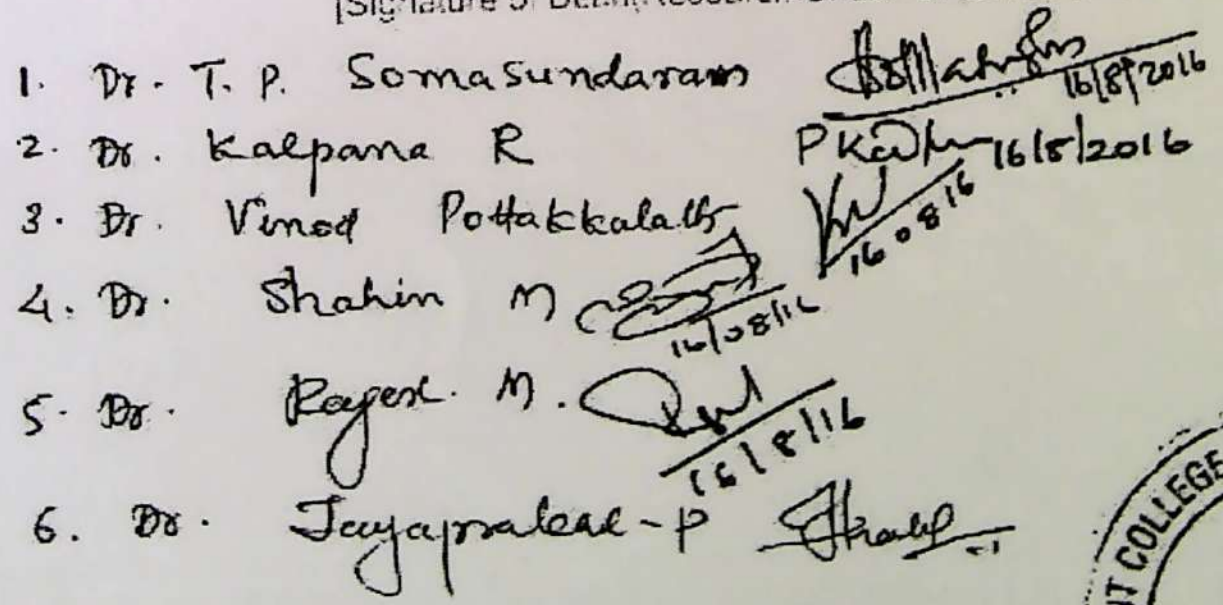 [Signature of Research
1. Dr. T. P. Somasundaram 16/8/2016
2. Dr. Kalpana R 16/8/2016
3. Dr. Vinod Pottakkalath 16 08 16
4. Dr. Shahin M 16/08/16
5. Dr. Rajesh. M. 16/8/16
6. Dr. Jayaprakash-P
COLLEGE